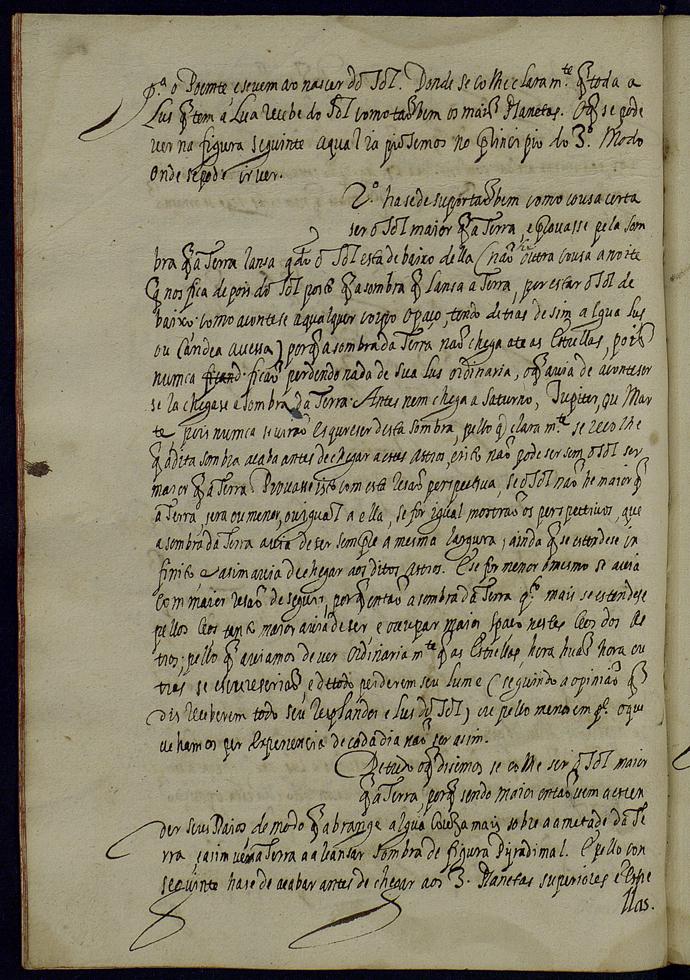 p.ª o Poente e se vem ao nascer do Sol. Donde se colhe claram.te q̃ toda a
Lus q̃ tem a Lua recebe do Sol como tãobem os mais Planetas. O q̃ se pode
ver na figura seguinte a qual ia pusemos no principio do 3.º Modo
onde se pode ir ver.
2.º ha se de supor tãobem como cousa certa
ser o Sol maior q̃ a Terra, e prouasse pela som
bra q̃ a Terra lansa qdo o Sol esta debaixo della (não he outra cousa a noite
q̃ nos fica depois do Sol posto q̃ a sombra q̃ lansa a Terra, por estar o Sol de
baixo como acontese a qualquer corpo opaco, tendo detras de sim algua lus
ou candea acessa) porq̃ a sombra da Terra não chega ate as Estrellas, pois
numca ficão perdendo nada de sua lus ordinaria, o q̃ auia de aconteser
se la chegase a sombra da Terra. Antes nem chega a Saturno, Jupiter, ou Mar
te pois numca se virão esqureser desta sombra, pello q̃ claram.te se recolhe
q̃ a dita sombra acaba antes de chegar a estes Astros, e isto não pode ser sem o Sol ser
maior q̃ a Terra. Prouasse isto com esta resão perspectiua, se o Sol não he maior q̃
a Terra, sera ou menor, ou igual a ella, se for igual mostrão os perspectiuos, que
a sombra da Terra auia de ter sempre a mesma largura, ainda q̃ se estendese in
finito e asim auia de chegar aos ditos Astros. E se for menor o mesmo se auia
com maior resão de seguir, porq̃ então a sombra da Terra q.to mais se estendese
pellos Ceos tanto maior auia de ser e occupar maior spaço nestes Ceos dos As
tros; pello q̃ auiamos de ver ordinariam.te q̃ as Estrellas, hora huas hora ou
tras se escureserião, e de todo perderem seu lume (seguindo a opinião q̃
dis receberem todo seu resplandor e lus do Sol) ou pello menos em p.te o que
vehamos por experiencia de cada dia não ser asim.
De tudo o q̃ disemos se colhe ser o Sol maior
q̃ a Terra, porq̃ sendo maior então vem a esten
der seus Raios de modo q̃ abrange algua couza mais sobre a ametade da Te
rra, e asim vem a Terra a alansar sombra de figura Pyradimal. E pello con
seguinte ha se de acabar antes de chegar aos 3. Planetas superiores e Estre
llas.